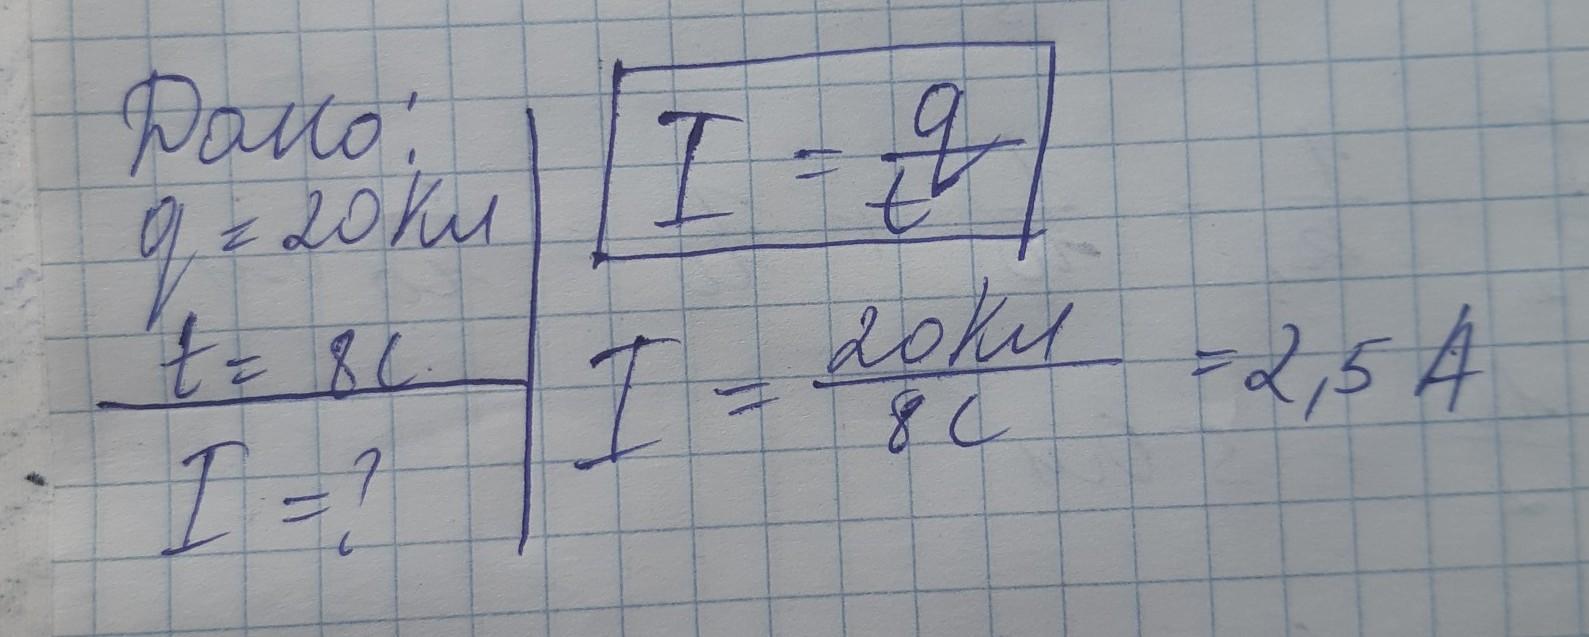 Дано:
q = 20 Кл
t = 8 с
I = ?
I = q/t
I = 20 Кл/8 с = 2,5 А